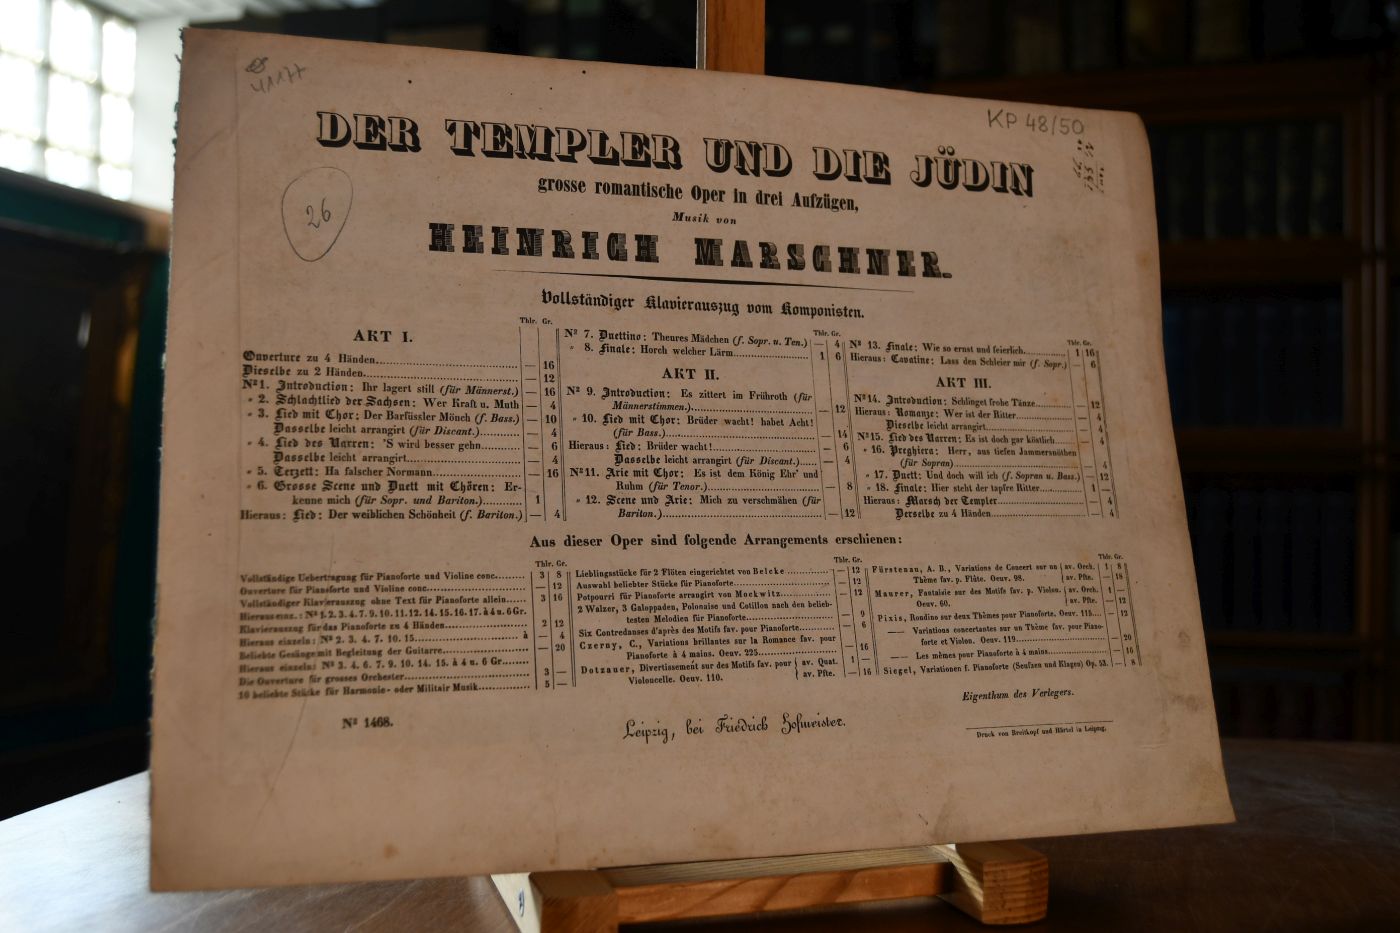 41177
KP 48/50
DER TEMPLER UND DIE JÜDIN
grosse romantische Oper in drei Aufzügen,
Musik von
HEINRICH MARSCHNER.
26
Vollständiger Klavierauszug vom Komponisten.
AKT I.
Thlr. Gr.
Ouverture zu 4 Händen — 16
Dieselbe zu 2 Händen — 12
Nº 1. Introduction: Ihr lagert still (für Männerst.) — 16
" 2. Schlachtlied der Sachsen: Wer Kraft u. Muth — 4
" 3. Lied mit Chor: Der Barfüssler Mönch (f. Bass.) — 10
Dasselbe leicht arrangirt (für Discant.) — 4
" 4. Lied des Narren: 'S wird besser gehn — 6
Dasselbe leicht arrangirt — 4
" 5. Terzett: Ha falscher Normann — 16
" 6. Grosse Scene und Duett mit Chören: Er-
kenne mich (für Sopr. und Bariton.) 1
Hieraus: Lied: Der weiblichen Schönheit (f. Bariton.) — 4
Thlr. Gr.
Nº 7. Duettino: Theures Mädchen (f. Sopr. u. Ten.) — 4
" 8. Finale: Horch welcher Lärm 1 6
AKT II.
Nº 9. Introduction: Es zittert im Frühroth (für
Männerstimmen.) — 12
" 10. Lied mit Chor: Brüder wacht! habet Acht!
(für Bass.) — 14
Hieraus: Lied: Brüder wacht! — 6
Dasselbe leicht arrangirt (für Discant.) — 4
Nº 11. Arie mit Chor: Es ist dem König Ehr' und
Ruhm (für Tenor.) — 8
" 12. Scene und Arie: Mich zu verschmähen (für
Bariton.) — 12
Thlr. Gr.
Nº 13. Finale: Wie so ernst und feierlich 1 16
Hieraus: Cavatine: Lass den Schleier mir (f. Sopr.) — 6
AKT III.
Nº 14. Introduction: Schlinget frohe Tänze — 12
Hieraus: Romanze: Wer ist der Ritter — 4
Dieselbe leicht arrangirt — 4
Nº 15. Lied des Narren: Es ist doch gar köstlich — 4
" 16. Preghiera: Herr, aus tiefen Jammersnöthen
(für Sopran) — 4
" 17. Duett: Und doch will ich (f. Sopran u. Bass.) — 12
" 18. Finale: Hier steht der tapfre Ritter 1 —
Hieraus: Marsch der Templer — 4
Derselbe zu 4 Händen — 4
Aus dieser Oper sind folgende Arrangements erschienen:
Thlr. Gr.
Vollständige Uebertragung für Pianoforte und Violine conc. 3 8
Ouverture für Pianoforte und Violine conc. — 12
Vollständiger Klavierauszug ohne Text für Pianoforte allein 3 16
Hieraus einz.: Nº 1. 2. 3. 4. 7. 9. 10. 11. 12. 14. 15. 16. 17. à 4 u. 6 Gr.
Klavierauszug für das Pianoforte zu 4 Händen 2 12
Hieraus einzeln: Nº 2. 3. 4. 7. 10. 15 à — 4
Beliebte Gesänge mit Begleitung der Guitarre — 20
Hieraus einzeln: Nº 3. 4. 6. 7. 9. 10. 14. 15. à 4 u. 6 Gr.
Die Ouverture für grosses Orchester 3 —
10 beliebte Stücke für Harmonie- oder Militair Musik 5 —
Thlr. Gr.
Lieblingsstücke für 2 Flöten eingerichtet von Belcke — 12
Auswahl beliebter Stücke für Pianoforte — 12
Potpourri für Pianoforte arrangirt von Mockwitz — 12
2 Walzer, 3 Galoppaden, Polonaise und Cotillon nach den belieb-
testen Melodien für Pianoforte — 9
Six Contredanses d'après des Motifs fav. pour Pianoforte — 6
Czerny, C., Variations brillantes sur la Romance fav. pour
Pianoforte à 4 mains. Oeuv. 225 — 16
Dotzauer, Divertissement sur des Motifs fav. pour av. Quat. 1 —
Violoncelle. Oeuv. 110. av. Pfte. — 16
Thlr. Gr.
Fürstenau, A. B., Variations de Concert sur un av. Orch. 1 8
Thème fav. p. Flûte. Oeuv. 98. av. Pfte. — 18
Maurer, Fantaisie sur des Motifs fav. p. Violon. av. Orch. 1 —
Oeuv. 60. av. Pfte. — 12
Pixis, Rondino sur deux Thèmes pour Pianoforte. Oeuv. 115 — 12
— Variations concertantes sur un Thème fav. pour Piano-
forte et Violon. Oeuv. 119 — 20
— Les mêmes pour Pianoforte à 4 mains — 16
Siegel, Variationen f. Pianoforte (Seufzen und Klagen) Op. 53. — 8
Eigenthum des Verlegers.
Nº 1468.
Leipzig, bei Friedrich Hofmeister.
Druck von Breitkopf und Härtel in Leipzig.